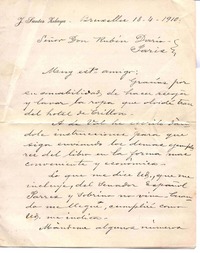 J. Santos Zelaya - Bruselas 18-4-1910.
Señor Don Rubén Darío
París
Muy est. amigo:
Gracias por
su amabilidad, de hacer recojer
y lavar la ropa que olvidé en
el hotel de Crillon.
A de Vol he escrito dan
dole instrucciones para que
siga enviando los demas ejempla
res del libro en la forma mas
conveniente y economica.
Lo que me dice Ud, que me
incluye, del Senador Español
García y sobrino no vino. Cuan
do me llegue, cumpliré con lo
Ud, me indica.
Mándeme algunos números